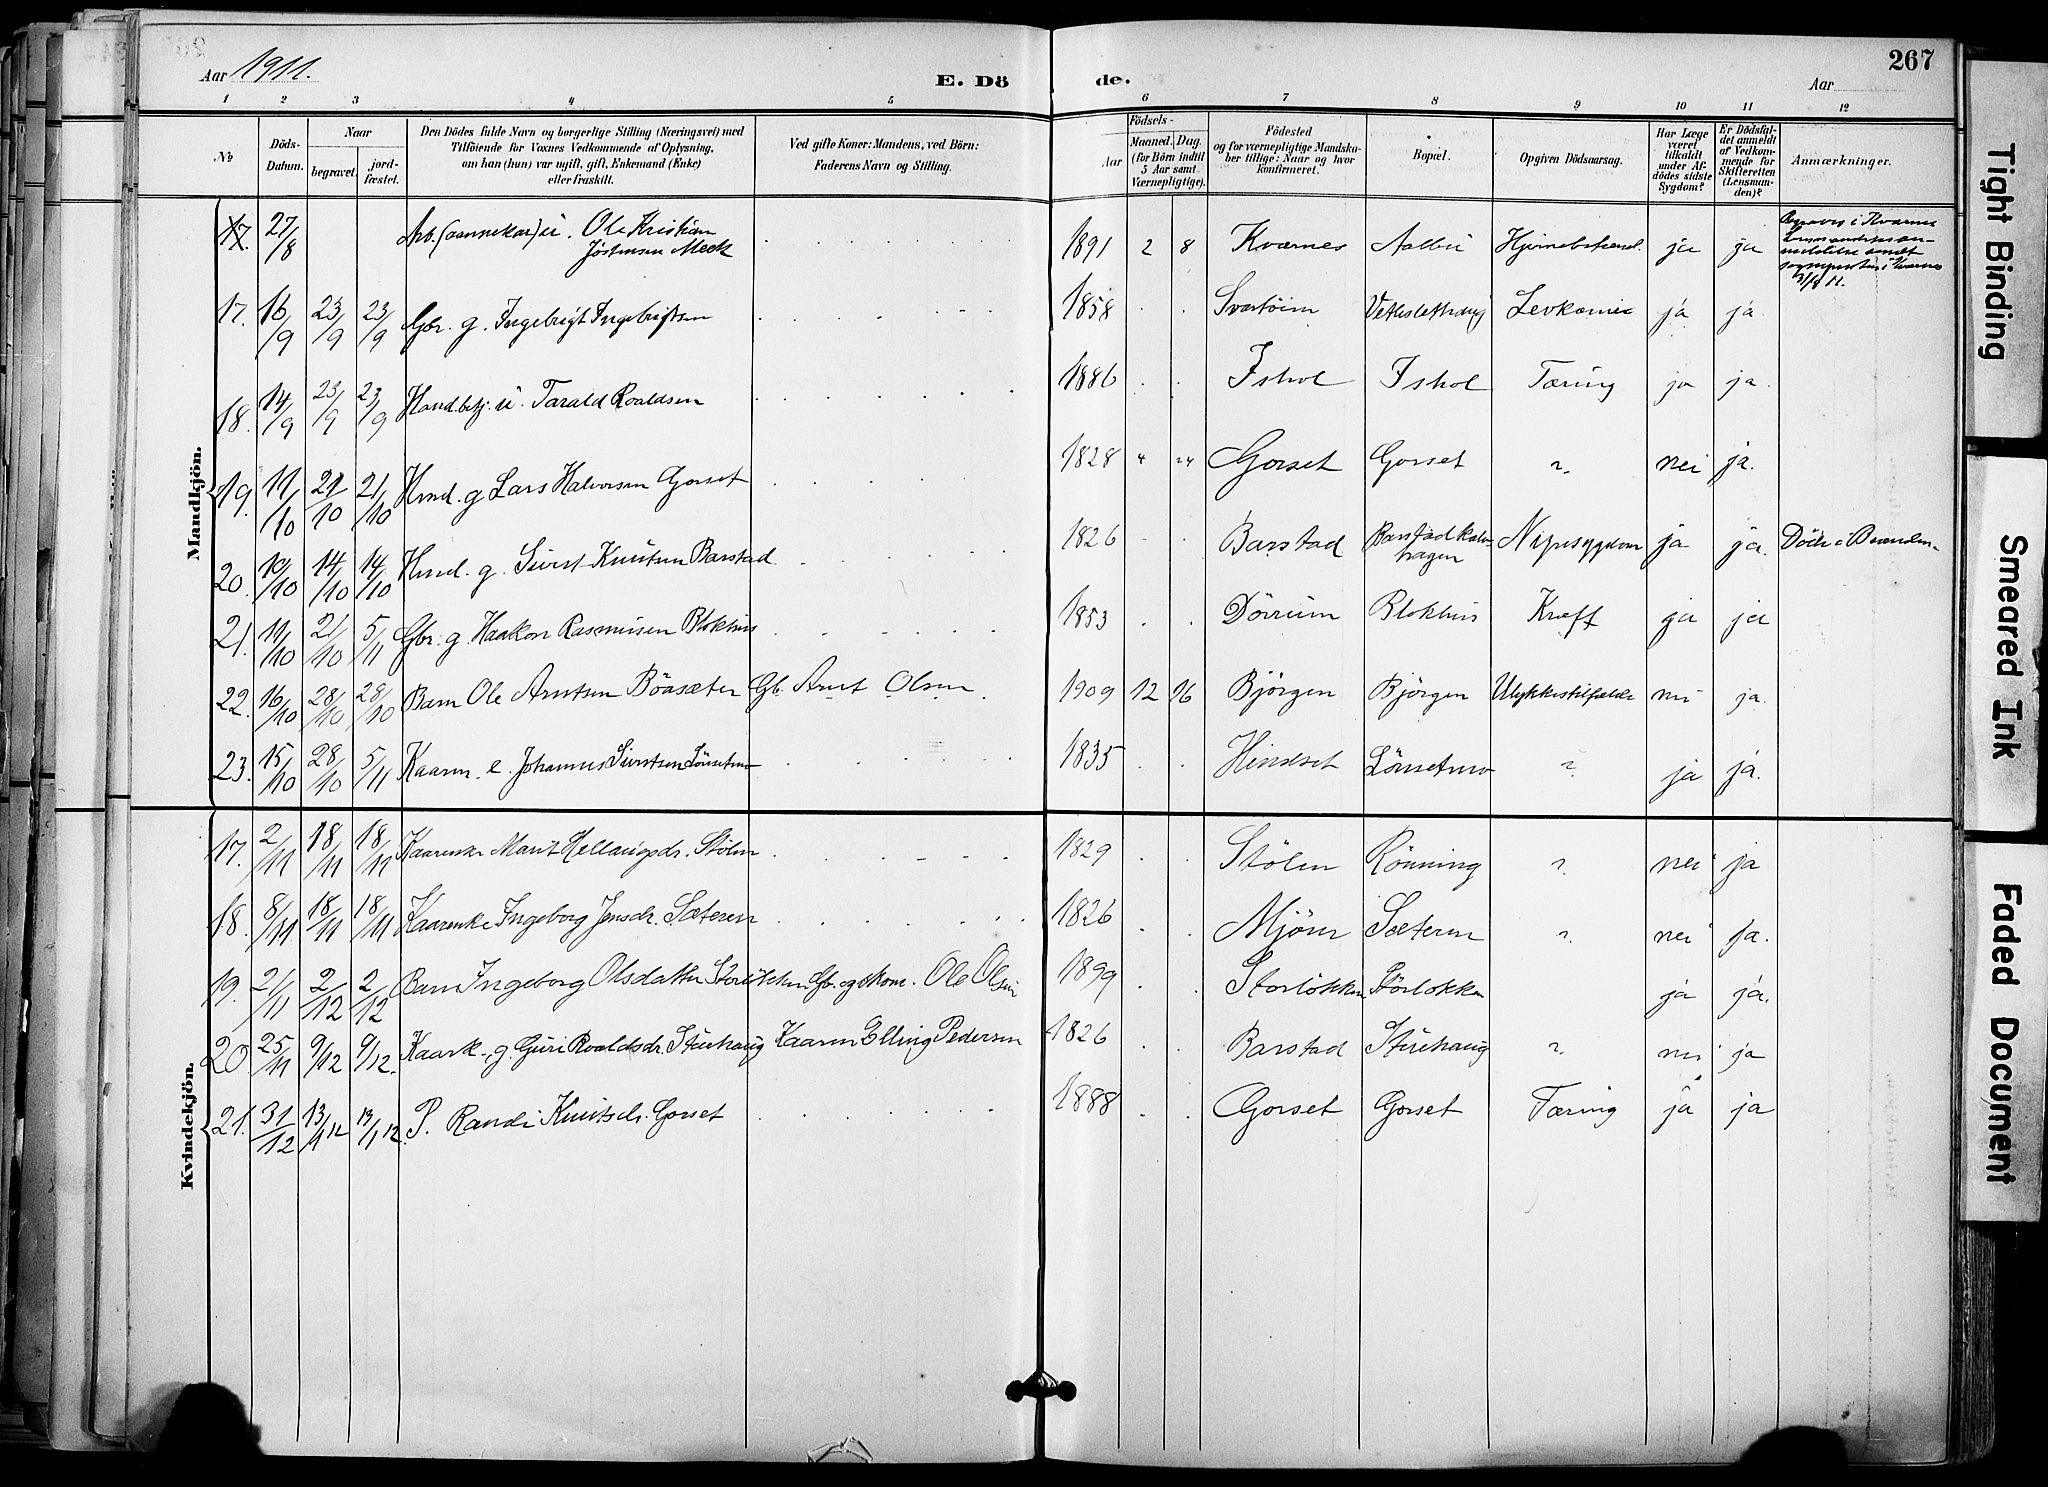 267
Aar 1911.
E. Döde.
Aar
1 2 3 4 5 6 7 8 9 10 11 12
No
Döds-Datum.
Naar
begravet.
jord-fæstet.
Den Dödes fulde Navn og borgerlige Stilling (Næringsvei) med
Tilföiende for Voxnes Vedkommende af Oplysning,
om han (hun) var ugift, gift, Enkemand (Enke)
eller fraskilt.
Ved gifte Koner: Mandens, ved Börn:
Faderens Navn og Stilling.
Födsels-
Aar
Maaned.
Dag.
(for Börn indtil
5 Aar samt
Værnepligtige).
Födested
og for værnepligtige Mandska-
ber tillige: Naar og hvor
konfirmeret.
Bopæl.
Opgiven Dödsaarsag.
Har Læge
været
tilkaldt
under Af-
dödes sidste
Sygdom?
Er Dödsfal-
det anmeldt
af Vedkom-
mende for
Skifteretten
(Lensman-
den)?
Anmærkninger.
Mandkjön.
17. 27/8 Arb. u. Ole Kristian
Jöstensen Meek 1891 2 8 Kværnes Aalbu ja ja
17. 16/9 23/9 23/9 Gbr. g. Ingebrigt Ingebrigtsen 1858 Svartöien Vetleslethaug Levkæmie ja ja
18. 14/9 23/9 23/9 Handbetj. u. Tarald Roaldsen 1886 Ishol Ishol Tæring ja ja.
19. 11/10 21/10 21/10 Kmd. g Lars Halvorsen Gorset 1828 4 24 Gorset Gorset ?. nei ja.
20. 10/10 14/10 14/10 Kmd. g. Sivert Knutsen Barstad 1826 Barstad Barstad Kalv-
hagen Nyresygdom ja ja. Döde i Brænden
21. 11/10 21/10 5/11 Gbr. g Haakon Rasmusen Blokhus 1853 Dörrum Blokhus Kræft ja ja
22. 16/10 28/10 28/10 Barn Ole Arntsen Böasæter Gb. Arnt Olsen. 1909 12 16 Björgen Björgen Ulykkestilfælde nei ja.
23. 15/10 28/10 5/11 Kaarm. e. Johannes Sivertsen Lönsetmo 1835 Hindset Lönsetmo ?. ja ja.
Kvindekjön.
17. 2/11 18/11 18/11 Kaarenke Marit Hellaugsdr. Stölen 1829 Stölen Rönning ?. nei ja
18. 8/11 18/11 18/11 Kaarenke Ingeborg Jensdr. Sæteren 1826 Mjöen Sæteren ?. nei ja.
19. 21/11 2/12 2/12 Barn Ingeborg Olsdatter Storlökken Gb. og skom. Ole Olsen 1899 Storlökken Storlökken ja ja.
20 25/11 9/12 9/12. Kaark. g. Guri Roaldsdr. Stuehaug Kaarm Elling Pedersen 1826 Barstad Stuehaug ?. nei ja
21. 31/12 13/1 12 13/1 12. P. Randi Knutsdr. Gorset 1888 Gorset Gorset Tæring ja ja
Tight Binding
Smeared Ink
Faded Document